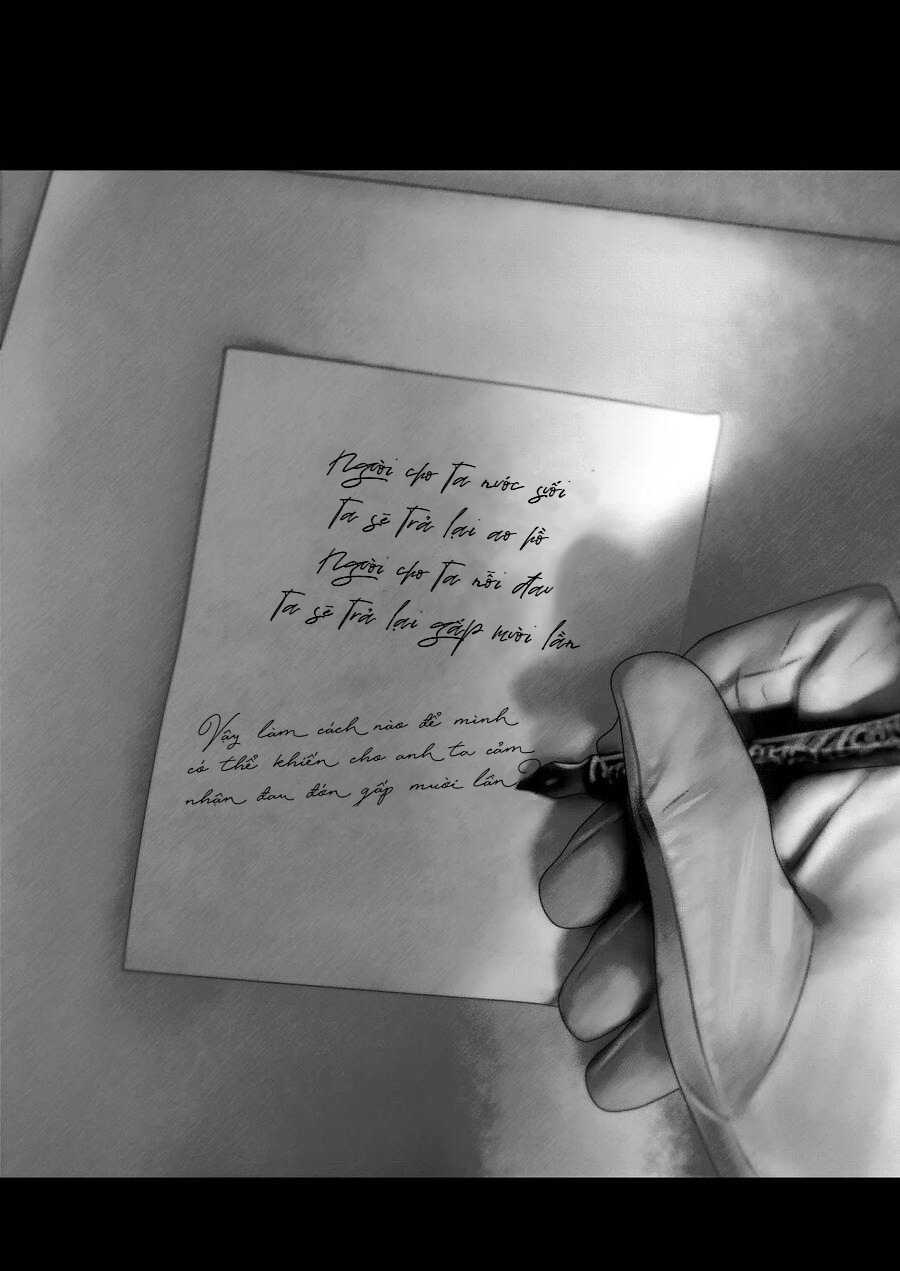 Người cho ta nước suối
Ta sẽ trả lại ao hồ
Người cho ta nỗi đau
Ta sẽ trả lại gấp mười lần
Vậy làm cách nào để mình
có thể khiến cho anh ta cảm
nhận đau đón gấp mười lần?